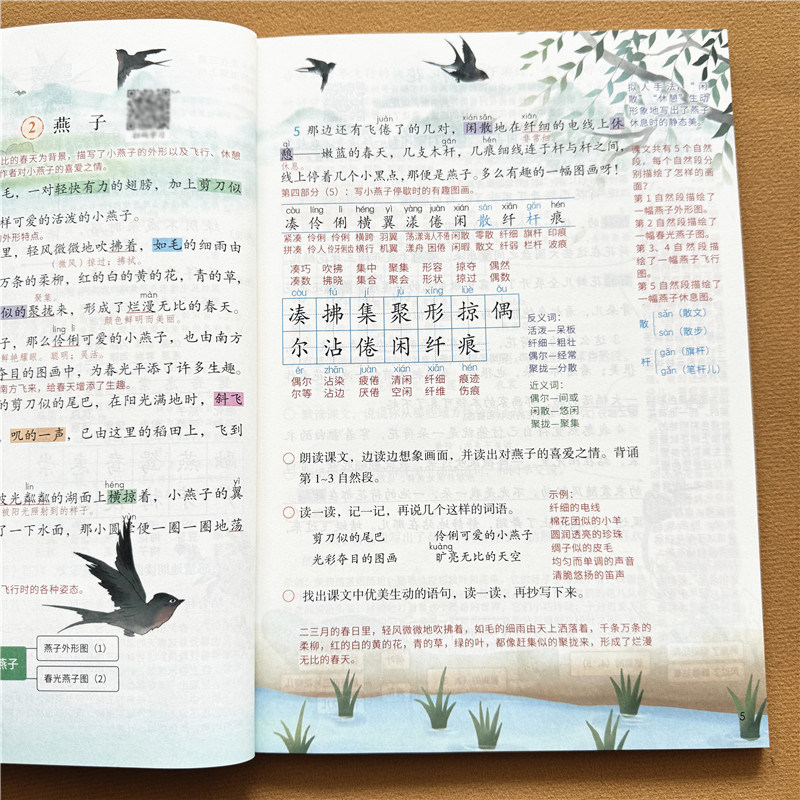 2 燕子
比的春天为背景，描写了小燕子的外形以及飞行、休憩
作者对小燕子的喜爱之情。
毛，一对轻快有力的翅膀，加上剪刀似
样可爱的活泼的小燕子。
的外形特点。
里，轻风微微地吹拂着，如毛的细雨由
（微风）掠过；拂拭。
万条的柔柳，红的白的黄的花，青的草，
聚集。
màn
似的聚拢来，形成了烂漫无比的春天。
颜色鲜明而美丽。
líng lì
子，那么伶俐可爱的小燕子，也由南方
鲜艳耀眼。 聪明；灵活。
夺目的图画中，为春光平添了许多生趣。
南方飞来，给春天增添了生趣。
的剪刀似的尾巴，在阳光满地时，斜飞
叽的一声，已由这里的稻田上，飞到
héng yì
皮光粼粼的湖面上横掠着，小燕子的翼
被阳光照射到的样子。
了一下水面，那小圆晕便一圈一圈地荡
飞行时的各种姿态。
燕子
燕子外形图（1）
春光燕子图（2）
juàn xián sǎn xiān
5 那边还有飞倦了的几对，闲散地在纤细的电线上休
qì
憩——嫩蓝的春天，几支木杆，几痕细线连于杆与杆之间，
休息。
线上停着几个小黑点，那便是燕子。多么有趣的一幅图画呀！
第四部分（5）：写小燕子停歇时的有趣图画。
còu líng lì héng yì yàng juàn xián sǎn xiān gān hén
凑 伶 俐 横 翼 漾 倦 闲 散 纤 杆 痕
凑巧 吹拂 集中 聚集 形容 掠夺 偶然
凑数 拂晓 集合 聚会 形状 掠过 偶数
còu fú jí jù xíng lüè ǒu
凑 拂 集 聚 形 掠 偶
尔 沾 倦 闲 纤 痕
ěr zhān juàn xián xiān hén
偶尔 沾染 疲倦 清闲 纤细 痕迹
尔等 沾边 厌倦 空闲 纤维 伤痕
反义词：
活泼—呆板
纤细—粗壮
偶尔—经常
聚拢—分散
近义词：
偶尔—间或
闲散—悠闲
聚拢—聚集
散
sǎn（散文）
sàn（散步）
杆
gān（旗杆）
gǎn（笔杆儿）
拟人手法，“闲
散”“休憩”生动
形象地写出了燕子
休息时的静态美。
课文共有5个自然
段，每个自然段分
别描绘了怎样的画
面？
第1自然段描绘了
一幅燕子外形图。
第2自然段描绘了
一幅春光燕子图。
第3、4自然段描
绘了一幅燕子飞行
图。
第5自然段描绘了
一幅燕子休息图。
○ 朗读课文，边读边想象画面，并读出对燕子的喜爱之情。背诵
第1~3自然段。
○ 读一读，记一记，再说几个这样的词语。
剪刀似的尾巴 伶俐可爱的小燕子
kuàng
光彩夺目的图画 旷亮无比的天空
示例：
纤细的电线
棉花团似的小羊
圆润透亮的珍珠
绸子似的皮毛
均匀而单调的声音
清脆悠扬的笛声
○ 找出课文中优美生动的语句，读一读，再抄写下来。
二三月的春日里，轻风微微地吹拂着，如毛的细雨由天上洒落着，千条万条的
柔柳，红的白的黄的花，青的草，绿的叶，都像赶集似的聚拢来，形成了烂漫
无比的春天。
5